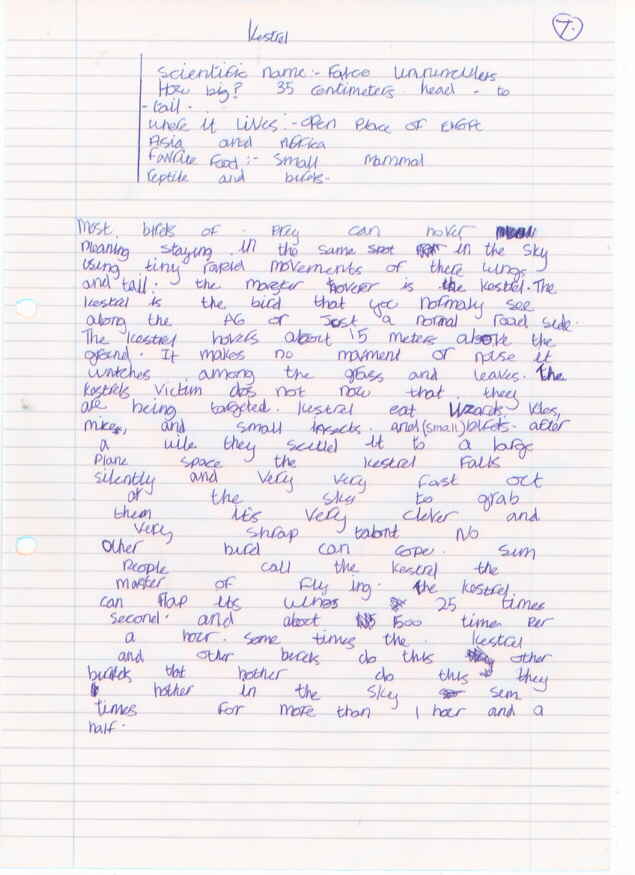 7.
Kestrel
scientific name:- Falco
How big? 35 centimeters head - to
- tail.
where it Lives:- open Place of
Asia and Africa
Food:- small mammal
reptile and birds.
Most birds of prey can hover
meaning staying in the same spot in the sky
using tiny rapid movements of there wings
and tail. the master hoverer is the kestrel. The
kestrel is the bird that you normaly see
along the A6 or Jost a normal road side.
The kestrel hovers about 15 meters above the
ground. It makes no movment or noise it
watches among the grass and leaves. the
kestrels victim does not now that they
are being targeted. kestrel eat lizards, voles,
mice, and small insects. and (small) birds. after
a wile they scelled it to a large
Plane space the kestrel Falls
silently and very very fast oct
of the sky to grab
them its very clever and
very shrap talont No
other bird can cope. sum
People call the kestrel the
master of fly ing. the kestrel
can flap its wings 25 times
second. and about 1500 times Per
a hour. some times the kestrel
and other birds do this other
birds that hother do this they
hother in the sky sum
times for more than 1 hour and a
half.